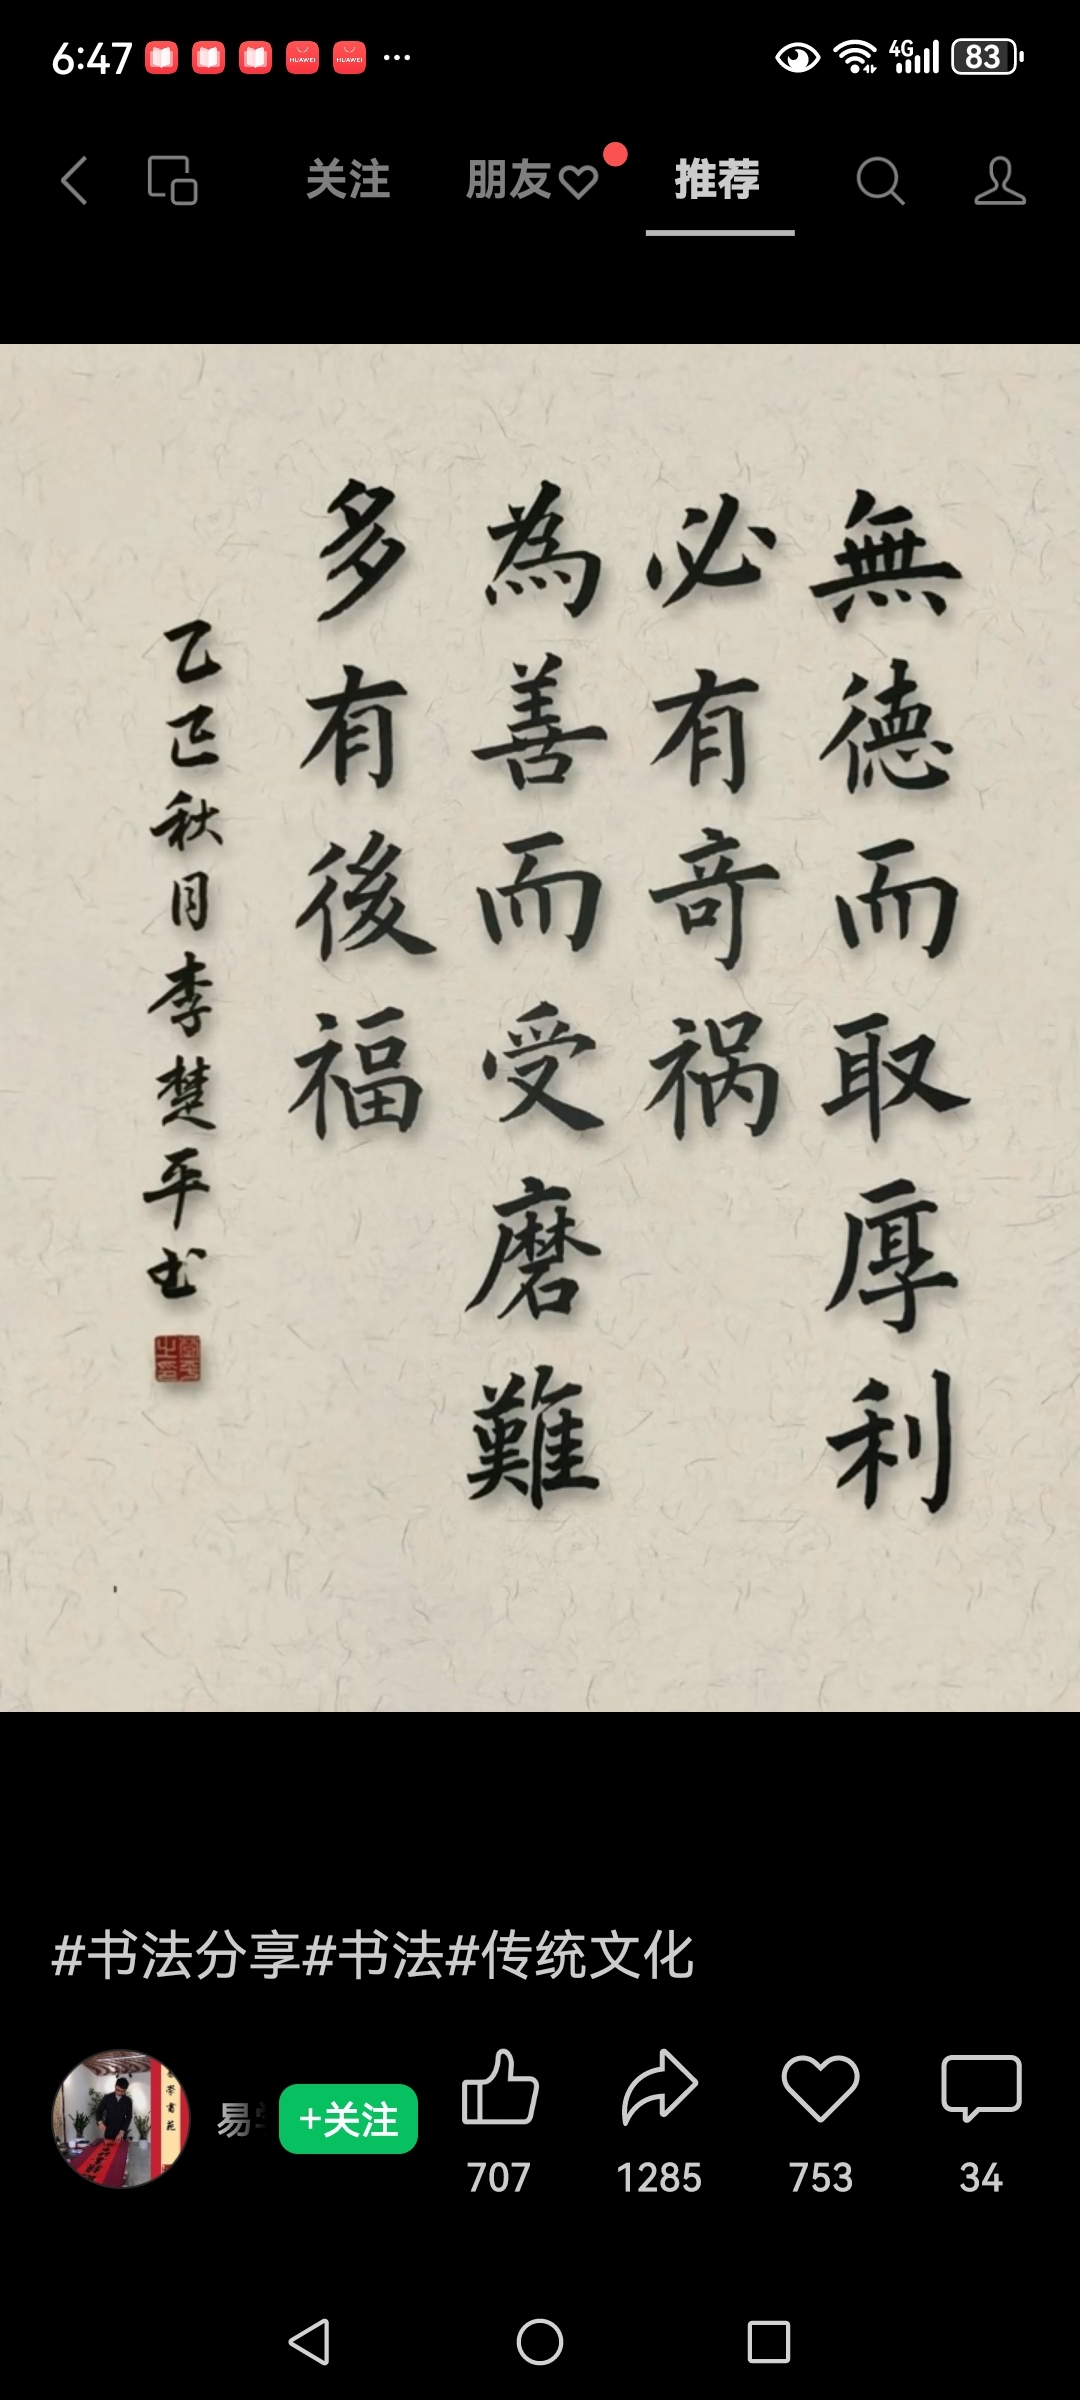 6:47
HUAWEI
HUAWEI
4G
83
关注
朋友
推荐
無德而取厚利
必有奇祸
為善而受磨難
多有後福
乙巳秋月李楚平书
#书法分享#书法#传统文化
易
+关注
707
1285
753
34